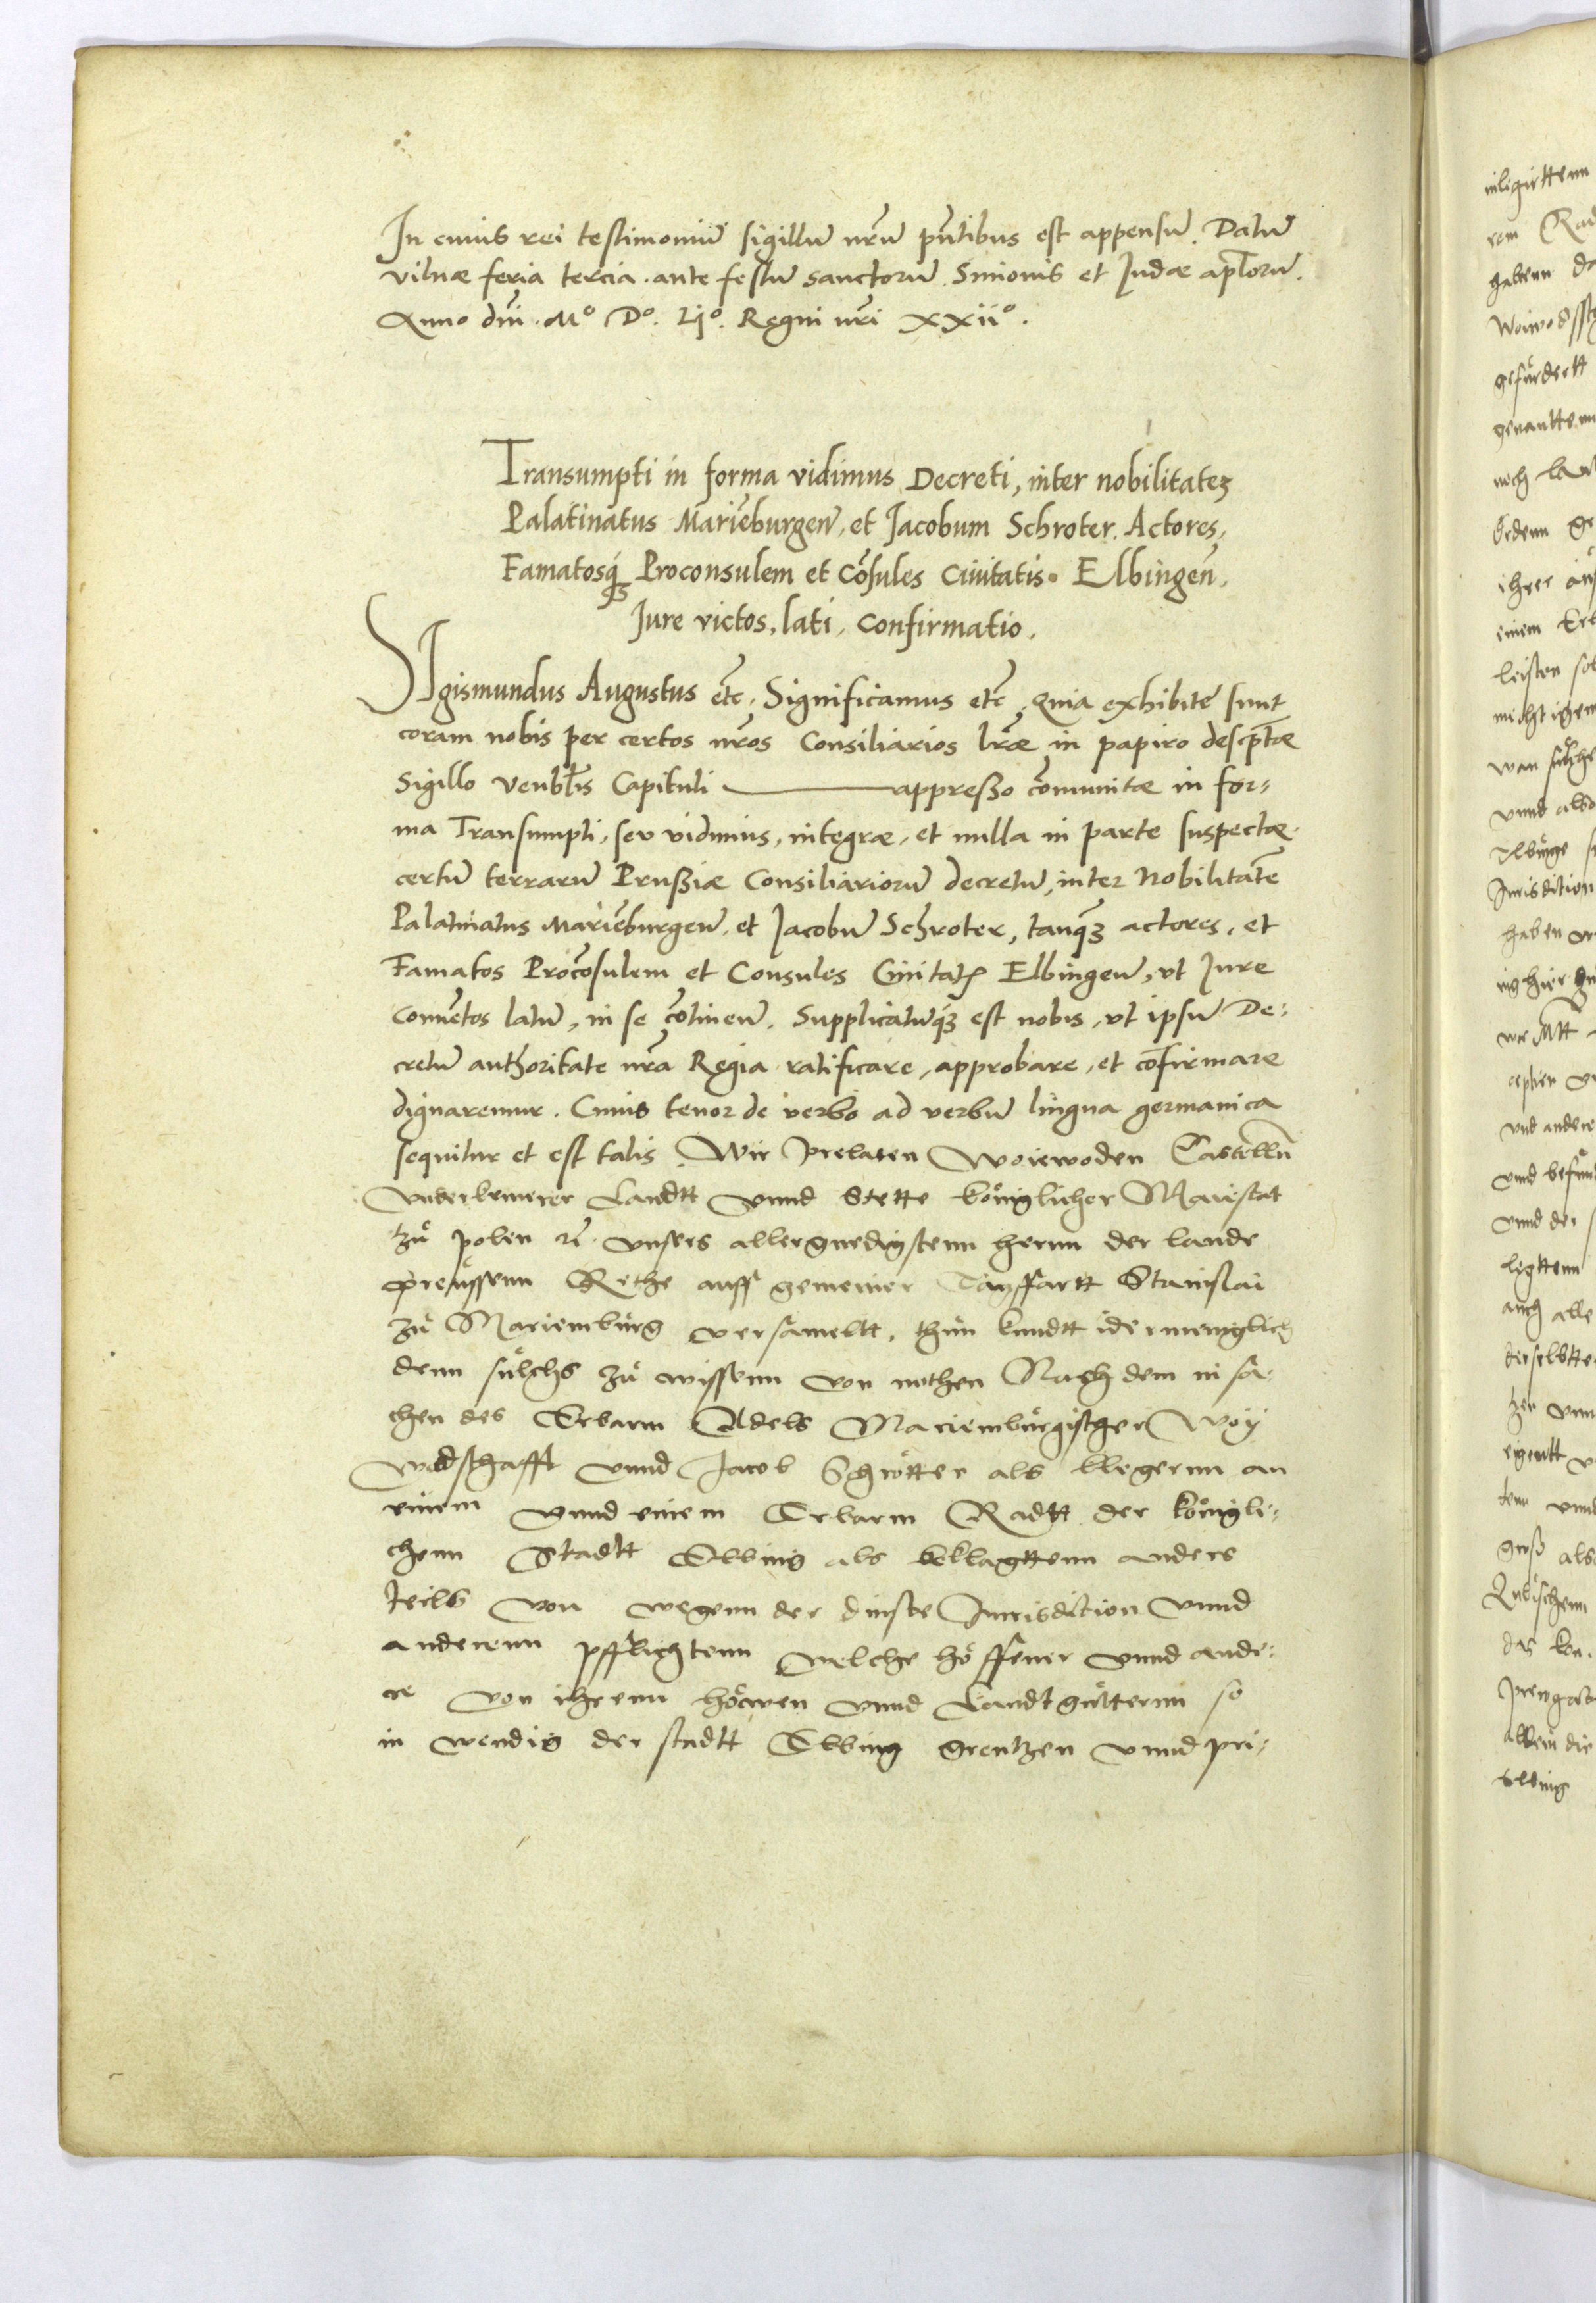 In cuius rei testimoniũ sigillũ nr̃m pñtibus est appensũ. Datũ
vilnæ feria tercia ante festũ sanctorũ Simonis et Iudæ apl̃orũ.
Anno dñi. Mº Dº. Lijº. Regni nr̃i XXiiº.
Transumpti in forma vidimus Decreti, inter nobilitatez
Palatinatus Mariẽburgeñ, et Jacobum Schroter. Actores,
Famatosq́ꝫ Proconsulem et Cõsules Ciuitatis. Elbingeñ,
Jure victos, lati, Confirmatio.
SIgismundus Augustus etc̃. Significamus etc̃, Quia exhibite sunt
coram nobis per certos nr̃os Consiliarios lr̃æ in papiro descp̃tæ
Sigillo Venbl̃is Capituli ——— appresso cõmunitæ in for=
ma Transumpti, seu vidimus, integræ, et nulla in parte suspectæ.
certũ terrarũ Prussiæ Consiliariorũ decretũ, inter Nobilitatẽ
Palatinatus Mariẽburgeñ, et Jacobũ Schroter, tanq̃ꝫ actores, et
Famatos Procõsulem et Consules Ciuitatꝭ Elbingeñ, ut Iure
Conuẽtos latũ, in se cõtineñ. Supplicatũq́ꝫ est nobis, ut ipsũ De=
cretũ authoritate nr̃a Regia ratificare, approbare, et cõfirmare
dignaremur. Cuius tenor de verbo ad verbũ lingua germanica
sequitur et est talis. Wir Prelaten Woiewoden Castellñ
Vnderkemerer Landtt vnnd Stette königlicher Maiestat
zů polen rc̃. vnsers allergnedigstenn hernn der lande
preussenn Rethe auff gemeiner Tagffartt Stanislai
zů Marienburg versameltt, thun kundtt idermeniglich
denn sulchs zů wissenn von nothen Nach dem in sa=
chen des Erbarm Adels Marienburgischer Woy
wodschafft vnnd Jacob Schrötter als klegernn an
einem vnnd einem Erbarm Radtt der königli=
chenn Stadtt Elbing als beklagttenn anders
teils von wegenn der dinste Jurisdiction vnnd
anderenn pfflichtenn welche höffener vnnd ande=
re von ihrenn höwen vnnd Landtgütternn so
in wendig der stadtt Elbing grentzen vnnd pri=